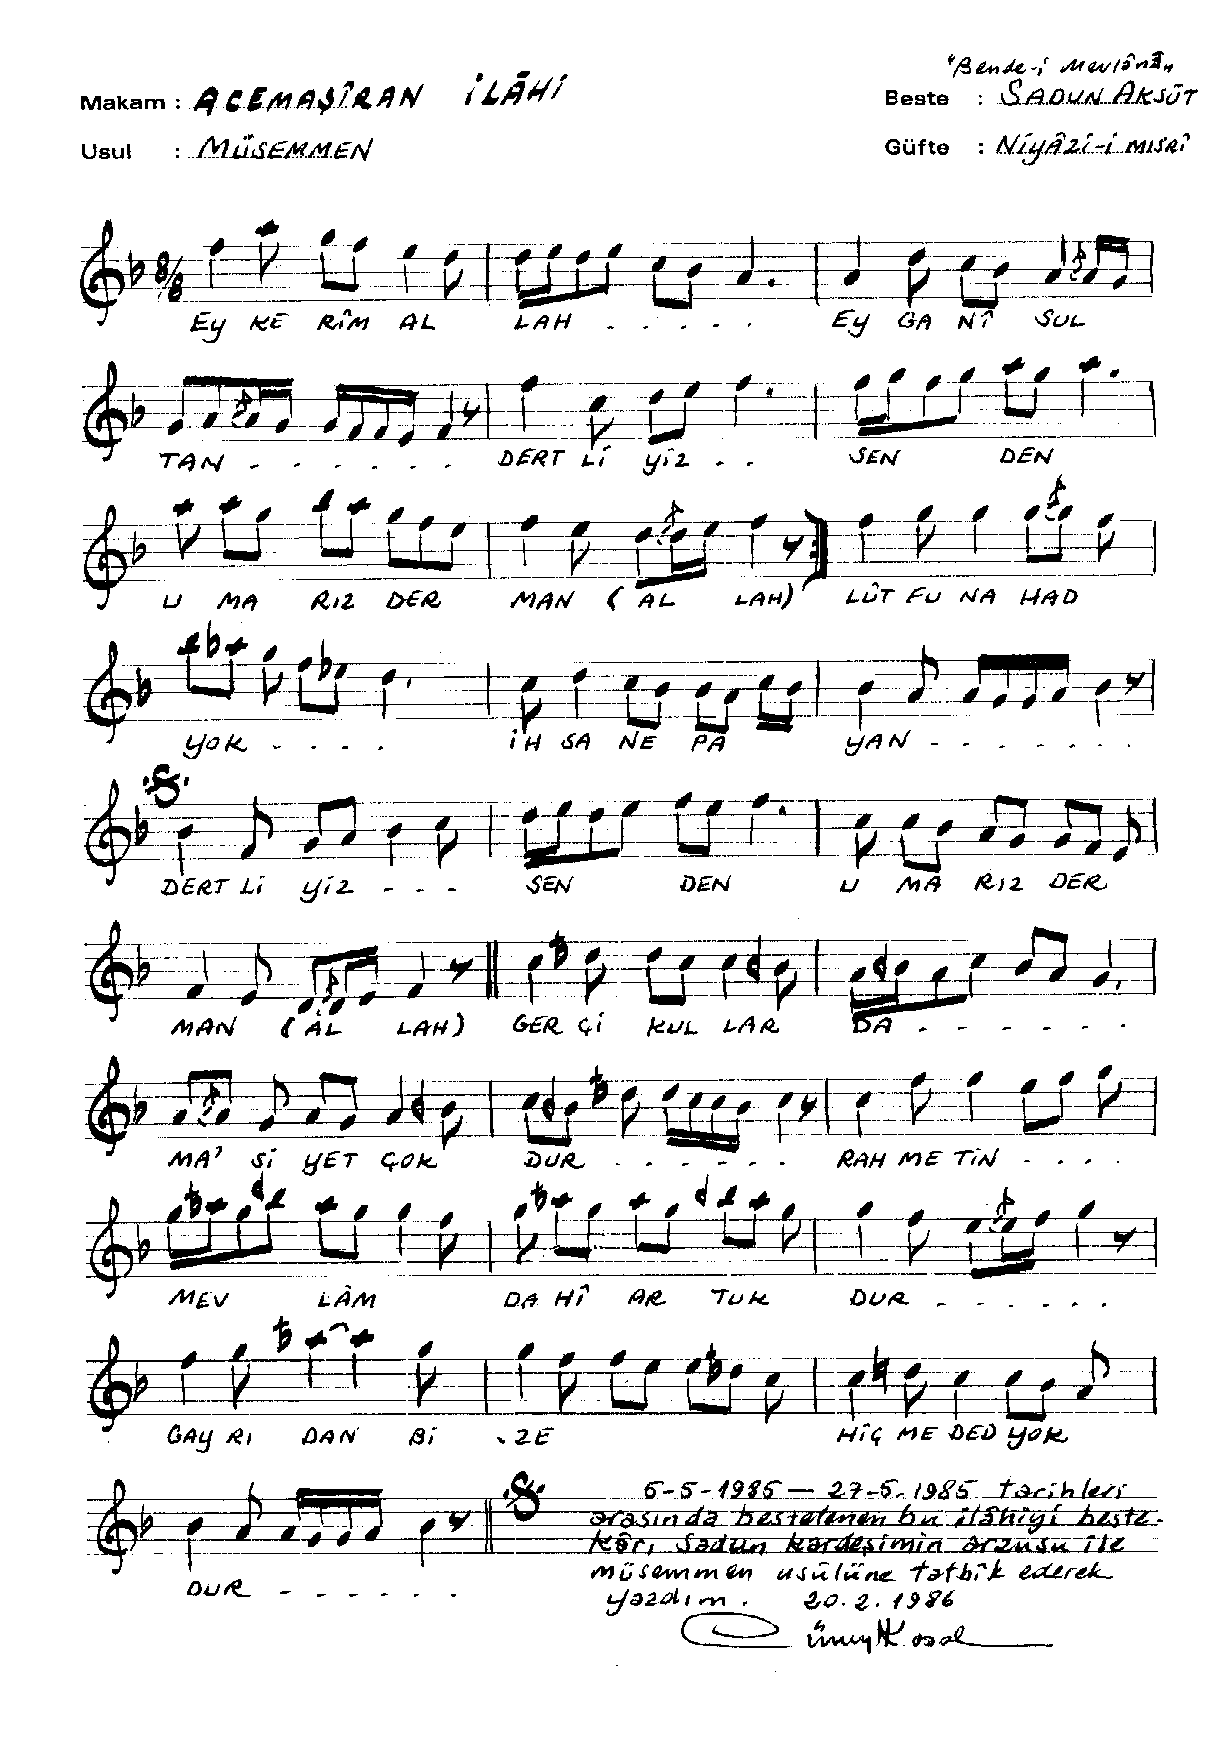 "Bende-i Mevlânâ"
Makam : ACEMAŞÎRAN İLÂHİ Beste : SADUN AKSÜT
Usul : MÜSEMMEN Güfte : Niyâzi-i MISRÎ
8/8
Ey KE RÎM AL LAH . . . . . Ey GA NÎ SUL
TAN - - - - - - DERT Lİ YİZ - - SEN DEN
U MA RIZ DER MAN ( AL LAH) LÛT FU NA HAD
YOK - - - - İH SA NE PA YAN - - - - - -
DERT Lİ YİZ - - - SEN DEN U MA RIZ DER
MAN ( AL LAH) GER Çİ KUL LAR DA - - - - - -
MA' Sİ YET ÇOK DUR - - - - - - RAH ME TİN - - - -
MEV LÂM DA HÎ AR TUK DUR - - - - - -
GAY RI DAN Bİ - ZE HİÇ ME DED YOK
DUR - - - - - -
5-5-1985 — 27-5-1985 tarihleri
arasında bestelenen bu ilâhiyi beste-
kârı Sadun kardeşimin arzusu ile
müsemmen usûlüne tatbîk ederek
yazdım. 20.2.1986
Cüneyt Kosal